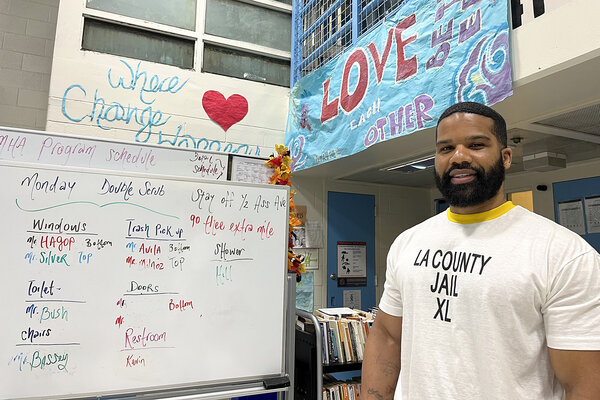 Where
Change
Happens
LOVE
EACH
OTHER
MHA Program schedule
Monday Double Scrub
Stay off 1/2 Ass Ave
go thee extra mile
Windows
Mr. HAGOP Bottom
Mr. Silver Top
Trash Pick up
Mr. AVILA Bottom
Mr. Munoz Top
Shower
Toilet-
Mr. Bush
Doors
Mr. Bottom
Mr.
Chairs
Mr. Bassey
Restroom
Kevin
LA COUNTY
JAIL
XL